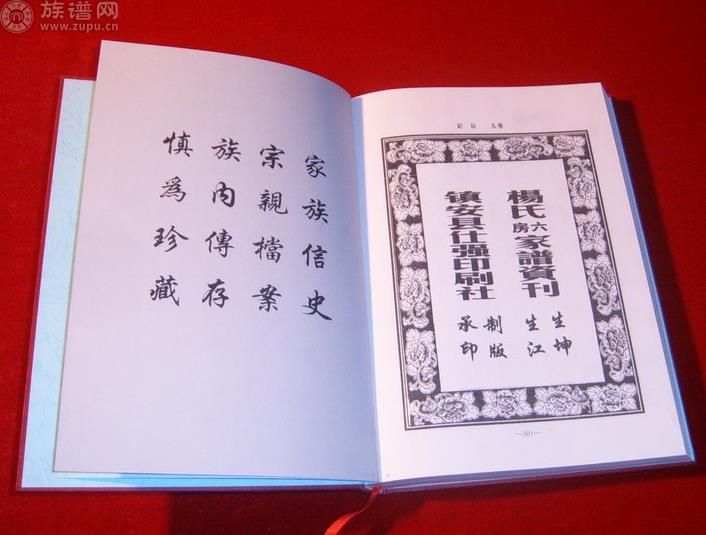 族谱网
www.zupu.cn
家族信史
宗親檔案
族内傳存
慎為珍藏
紀后 九卷
楊氏六房家譜資刊
生坤
生江
镇安县仕强印刷社
制版
承印
—301—